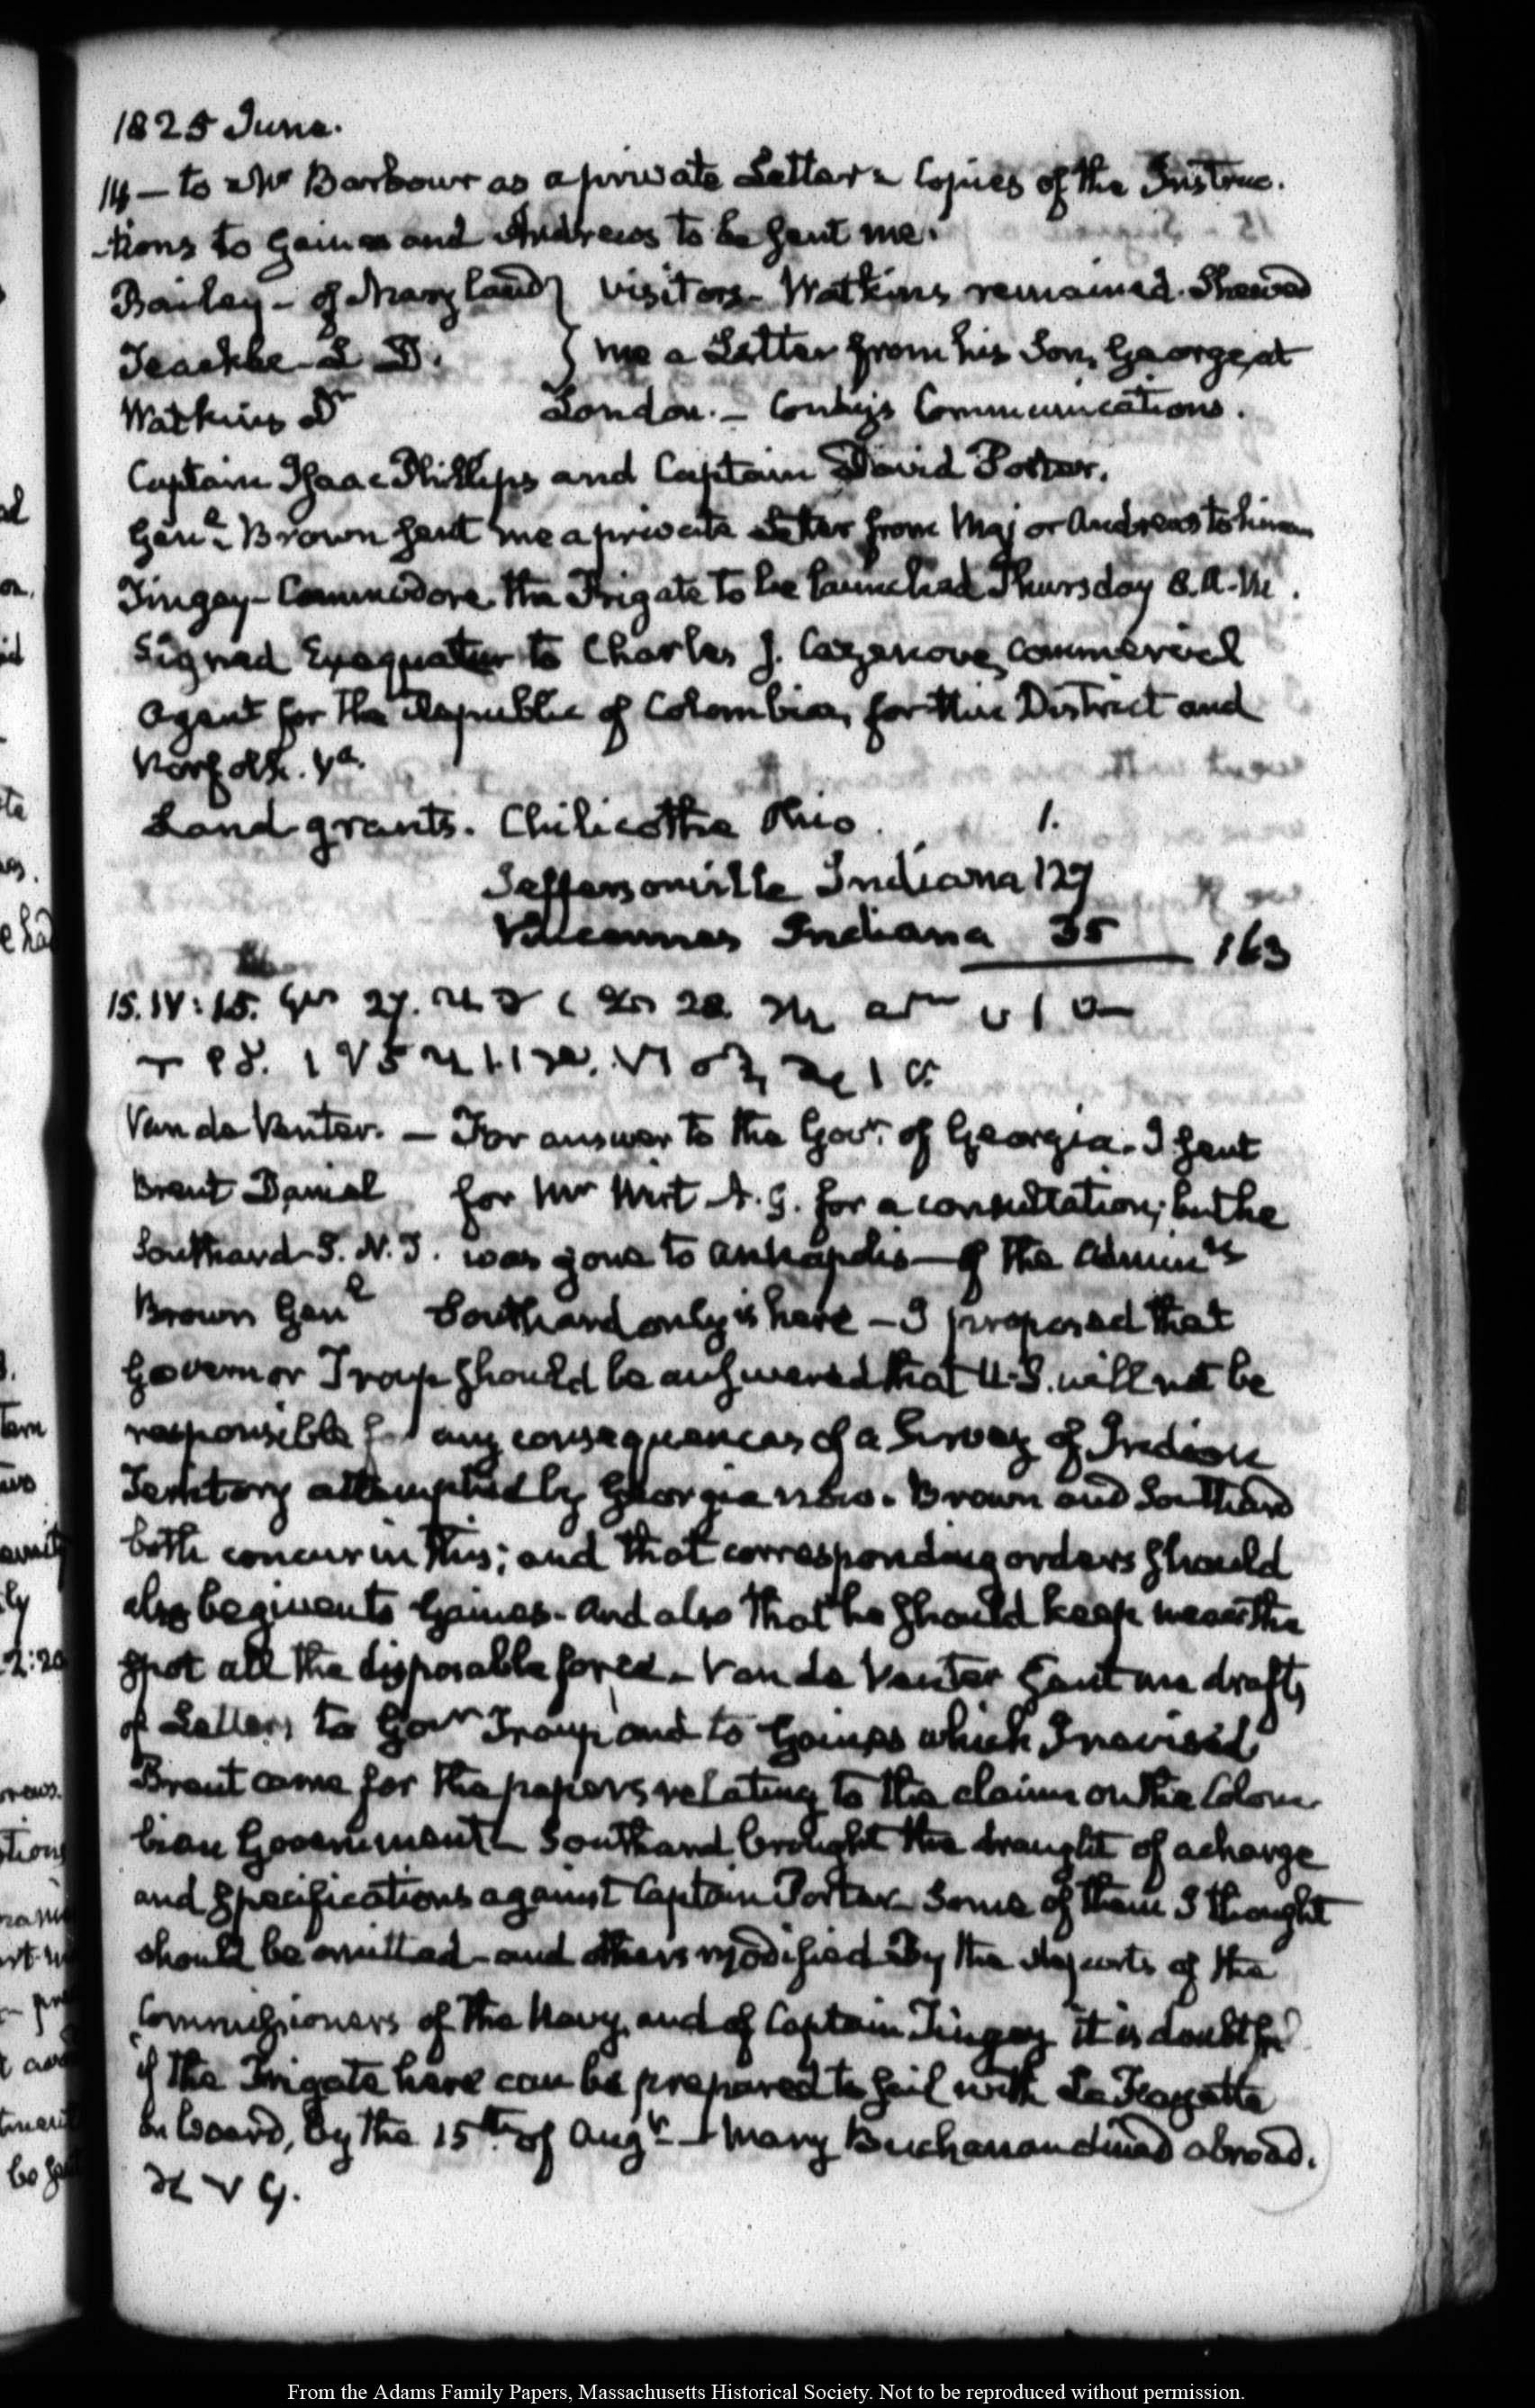 1825 June.
14 — to Mr Barbour as a private Letter - Copies of the Instruc-
-tions to Gaines and Andrews to be sent me.
Bailey - of Maryland } visitors - Watkins remained. Shewed
Teackle L D. } me a Letter from his Son, George, at
Watkins Dr London. - Communications.
Captain Isaac Phillips and Captain David Porter.
Genl Brown sent me a private Letter from Major Andrews to him
Tingey - Commodore the Frigate to be launched Thursday 8. A.M.
Signed Exequatur to Charles J. Cazenove, Commercial
Agent for the Republic of Colombia, for this District and
Norfolk. Va.
Land grants. Chilicothe Ohio. 1.
Jeffersonville Indiana 127
Vincennes Indiana 35 163
15. IV: 15.
Van de Venter. — For answer to the Govr. of Georgia. I sent
Brent Daniel for Mr Wirt A. G. for a consultation; but he
Southard S. N. J. was gone to Annapolis — of the Adminn
Brown Genl Southard only is here — I proposed that
Governor Troup should be answered that U.S. will not be
responsible for any consequences of a Survey of Indian
Territory attempted by Georgia now. Brown and Southard
both concur in this; and that corresponding orders should
also be given to Gaines - And also that he should keep near the
spot all the disposable force. Van de Venter sent me drafts
of Letters to Govr Troup, and to Gaines which I revised
Brent came for the papers relating to the claims on the Colom-
bian Government - Southard brought the draught of a charge
and specifications against Captain Porter - Some of them I thought
should be omitted - and others modified - By the Reports of the
Commissioners of the Navy, and of Captain Tingey it is doubtful
if the Frigate here can be prepared to sail with La Fayette
on board, by the 15th. of Augt. — Mary Buchanan dined abroad.
From the Adams Family Papers, Massachusetts Historical Society. Not to be reproduced without permission.